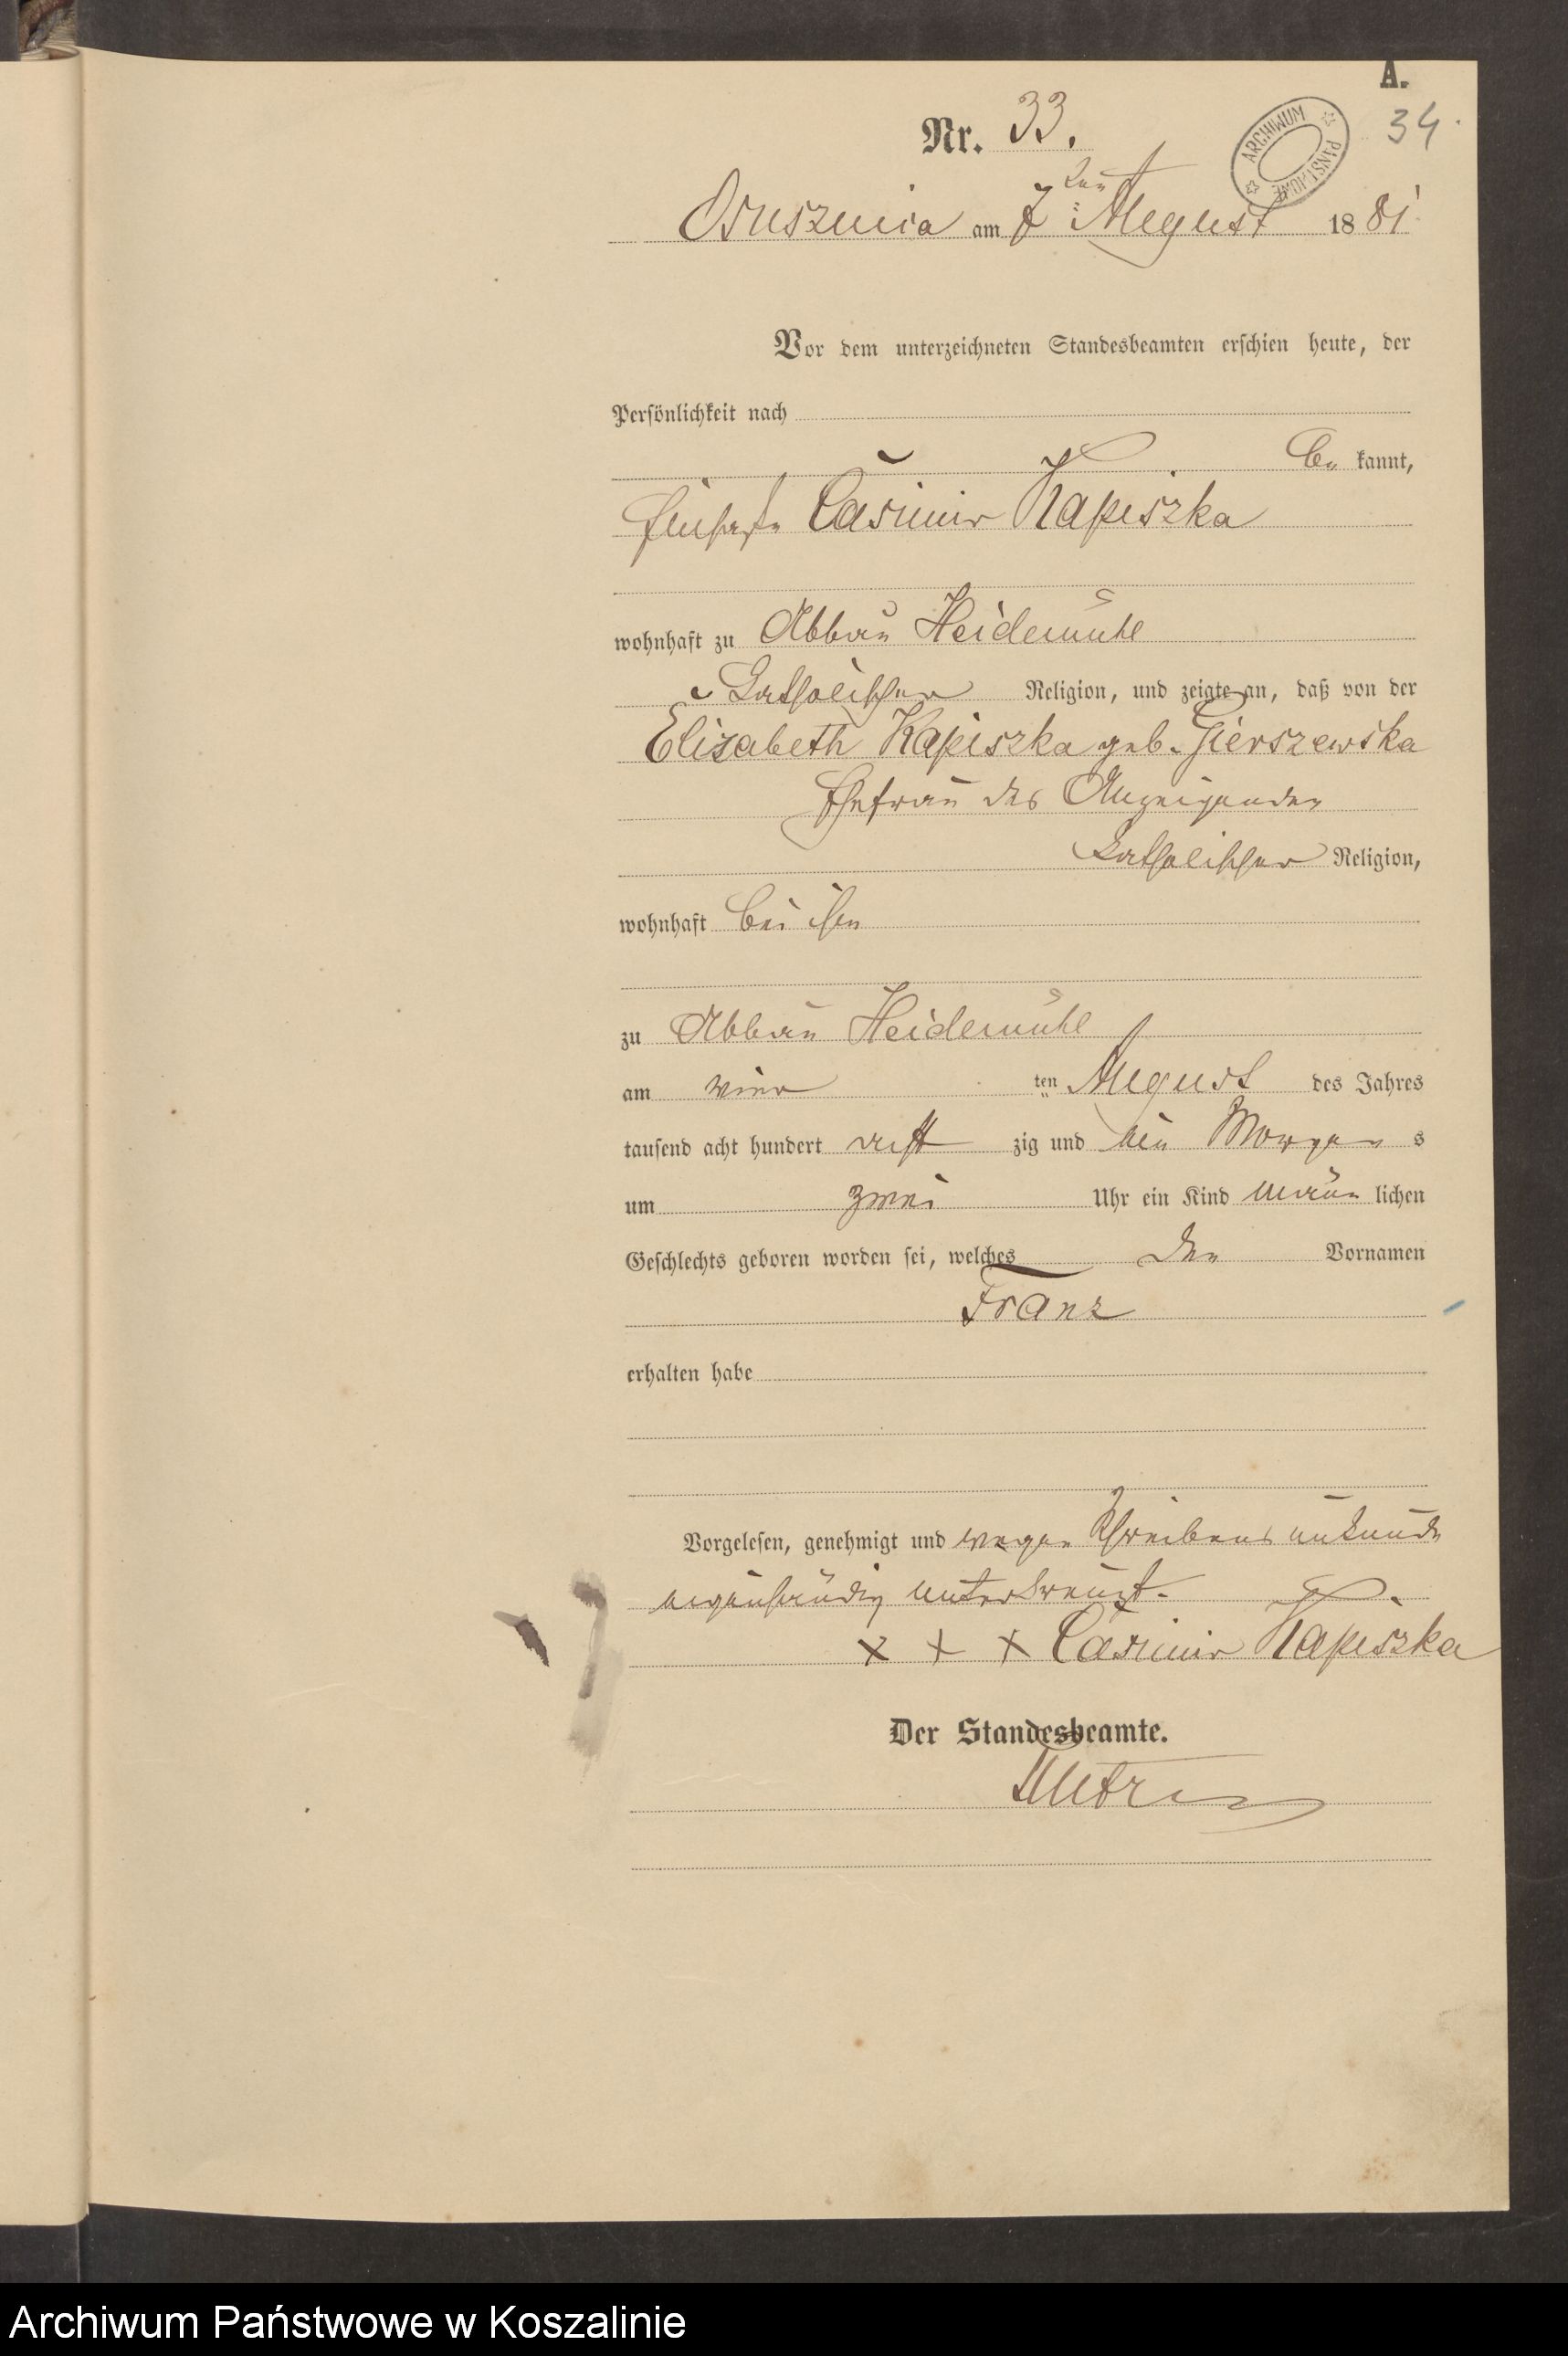 A.
34
Nr. 33.
ARCHIWUM PAŃSTWOWE
Osusznica am 7ten August 1881.
Vor dem unterzeichneten Standesbeamten erschien heute, der
Persönlichkeit nach
bekannt,
Casimir Kapiszka
wohnhaft zu Abbau Heidemühl
katholischer Religion, und zeigte an, daß von der
Elisabeth Kapiszka geb. Gierszewska
Ehefrau des Anzeigenden
katholischer Religion,
wohnhaft bei ihm
zu Abbau Heidemühl
am vier ten August des Jahres
tausend acht hundert acht zig und ein Morgens
um zwei Uhr ein Kind männlichen
Geschlechts geboren worden sei, welches den Vornamen
Franz
erhalten habe
Vorgelesen, genehmigt und wegen Schreibens unkunde
eigenhändig unterkreuzt.
x + x Casimir Kapiszka
Der Standesbeamte.
Archiwum Państwowe w Koszalinie